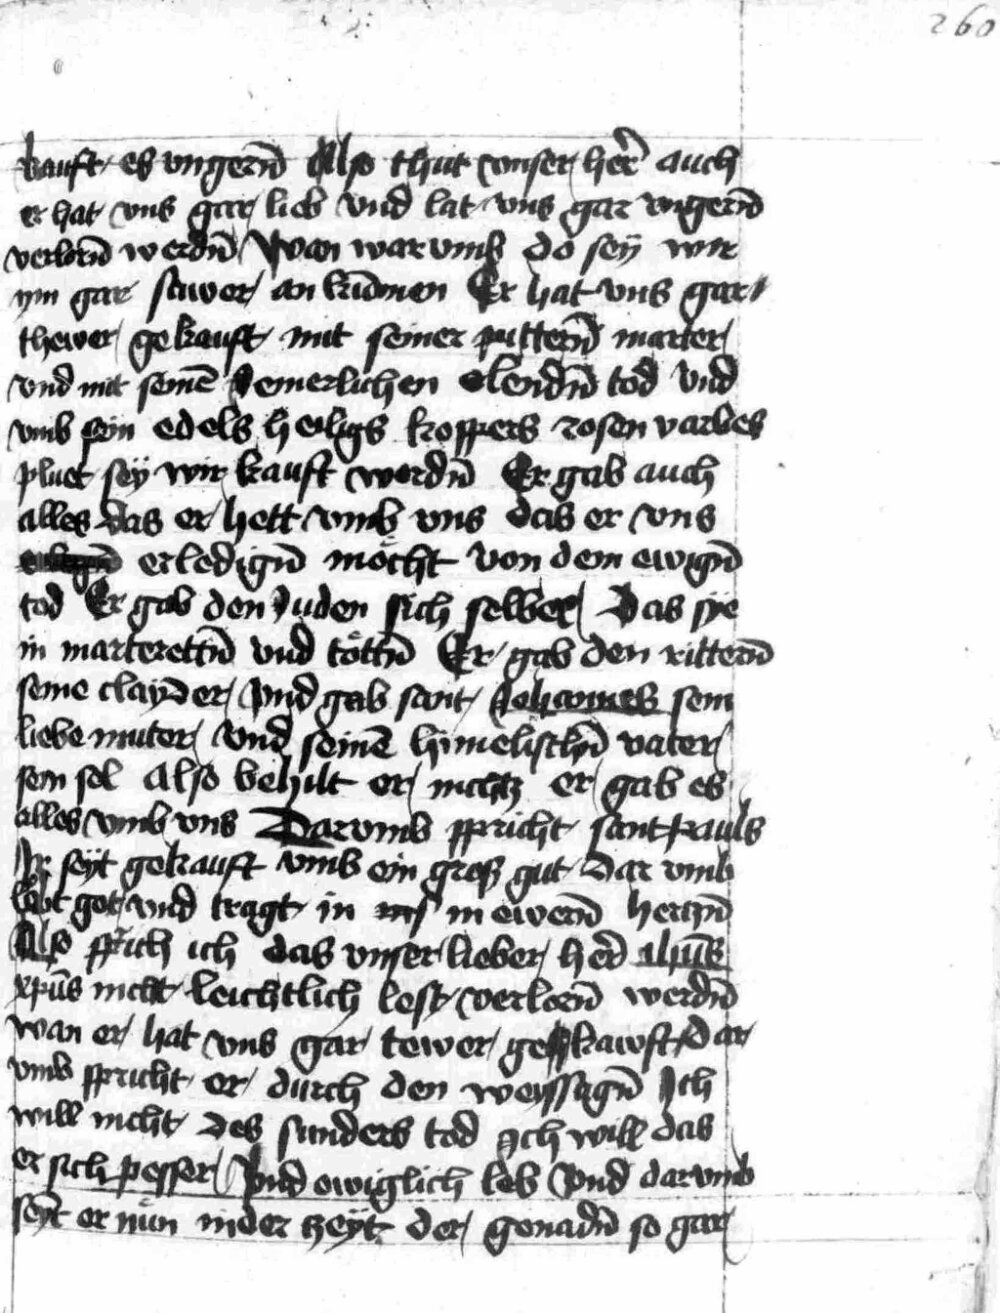 260
kauft es vngern̄ Also thut vnnser her̄ auch
er hat vns gar lieb vnd lat vns gar vngern̄
verlorn̄ werdn̄ Wan warvmb do seÿ wir
ym gar sawer an kūmen Er hat vns gar
thewer gekauft mit seiner pittern̄ marter
vnd mit seinē Iemerlichen elendn̄ tod vnd
vmb sein edels heiligs kospers rosen varbes
pluet seÿ wir kauft wordn̄ Er gab auch
alles das er hett vmb vns das er vns
erledign̄ möcht von dem ewign̄
tod Er gab den Juden sich selber Das sye
in marterettn̄ vnd töttn̄ Er gab den rittern̄
seine clayder vnd gab sant Johannes sein
liebe muter vnd seinē himelischn̄ vater
sein sel Also behilt er nichtz er gab es
alles vmb vns Darvmb spricht sant Pauls
Ir seÿt gekauft vmb ein groß gut Dar vmb
lobt got vnd tragt in in ewern̄ hertzn̄
Also sprich ich das vnser lieber her̄ ihūs
xpūs nicht leichtlich lest verlorn̄ werdn̄
wan er hat vns gar tewer gekawft Dar
vmb spricht er durch den weyssagn̄ Ich
will nicht des sunders tod Ich will das
er sich pesser vnd ewiglich leb vnd darvmb
seÿt er nün inder tzeÿt der genadn̄ so gar